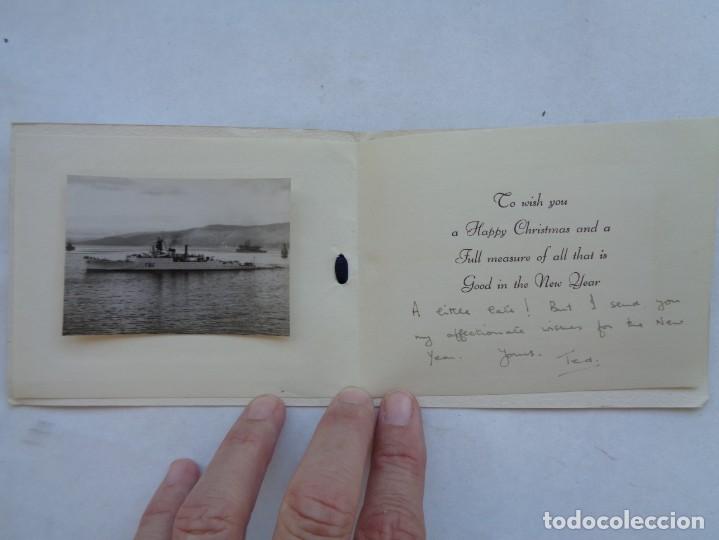 To wish you
a Happy Christmas and a
Full measure of all that is
Good in the New Year
A little late! But I send you
my affectionate wishes for the New
Year. Yours. Ted.
todocoleccion.net